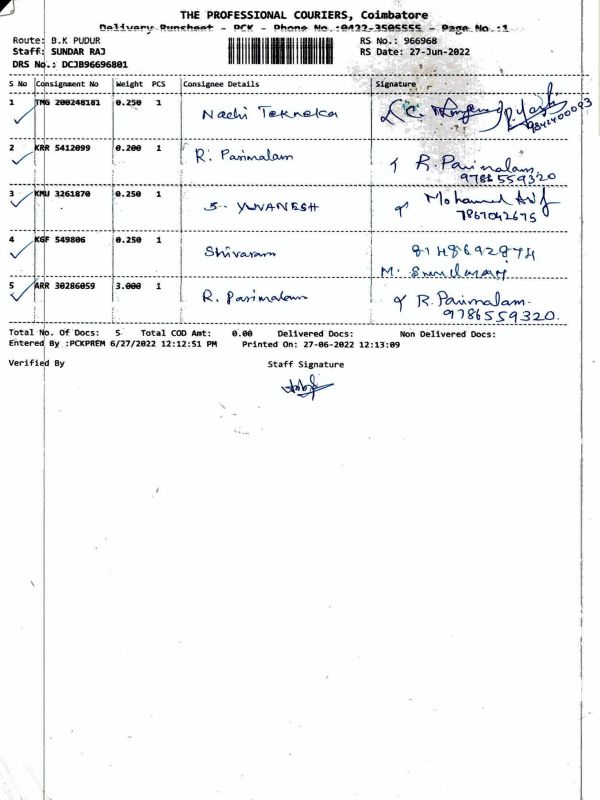 THE PROFESSIONAL COURIERS, Coimbatore
Delivery Runsheet - PCK - Phone No.:0422-3505555 - Page No.:1
Route: B.K PUDUR
RS No.: 966968
Staff: SUNDAR RAJ
RS Date: 27-Jun-2022
DRS No.: DCJB96696801
S No Consignment No Weight PCS Consignee Details Signature
1 TMG 200248181 0.250 1 Nachi Tekneka
9842400093
2 KRR 5412099 0.200 1 R. Parimalam R. Parimalam
9786559320
3 KMU 3261870 0.250 1 S. YUVANESH Mohamed Arif
7867042675
4 KGF 549806 0.250 1 Shivaram 8148692874
M. Sundararaj
5 ARR 30286059 3.000 1 R. Parimalam R. Parimalam.
9786559320.
Total No. Of Docs: 5 Total COD Amt: 0.00 Delivered Docs: Non Delivered Docs:
Entered By :PCKPREM 6/27/2022 12:12:51 PM Printed On: 27-06-2022 12:13:09
Verified By Staff Signature